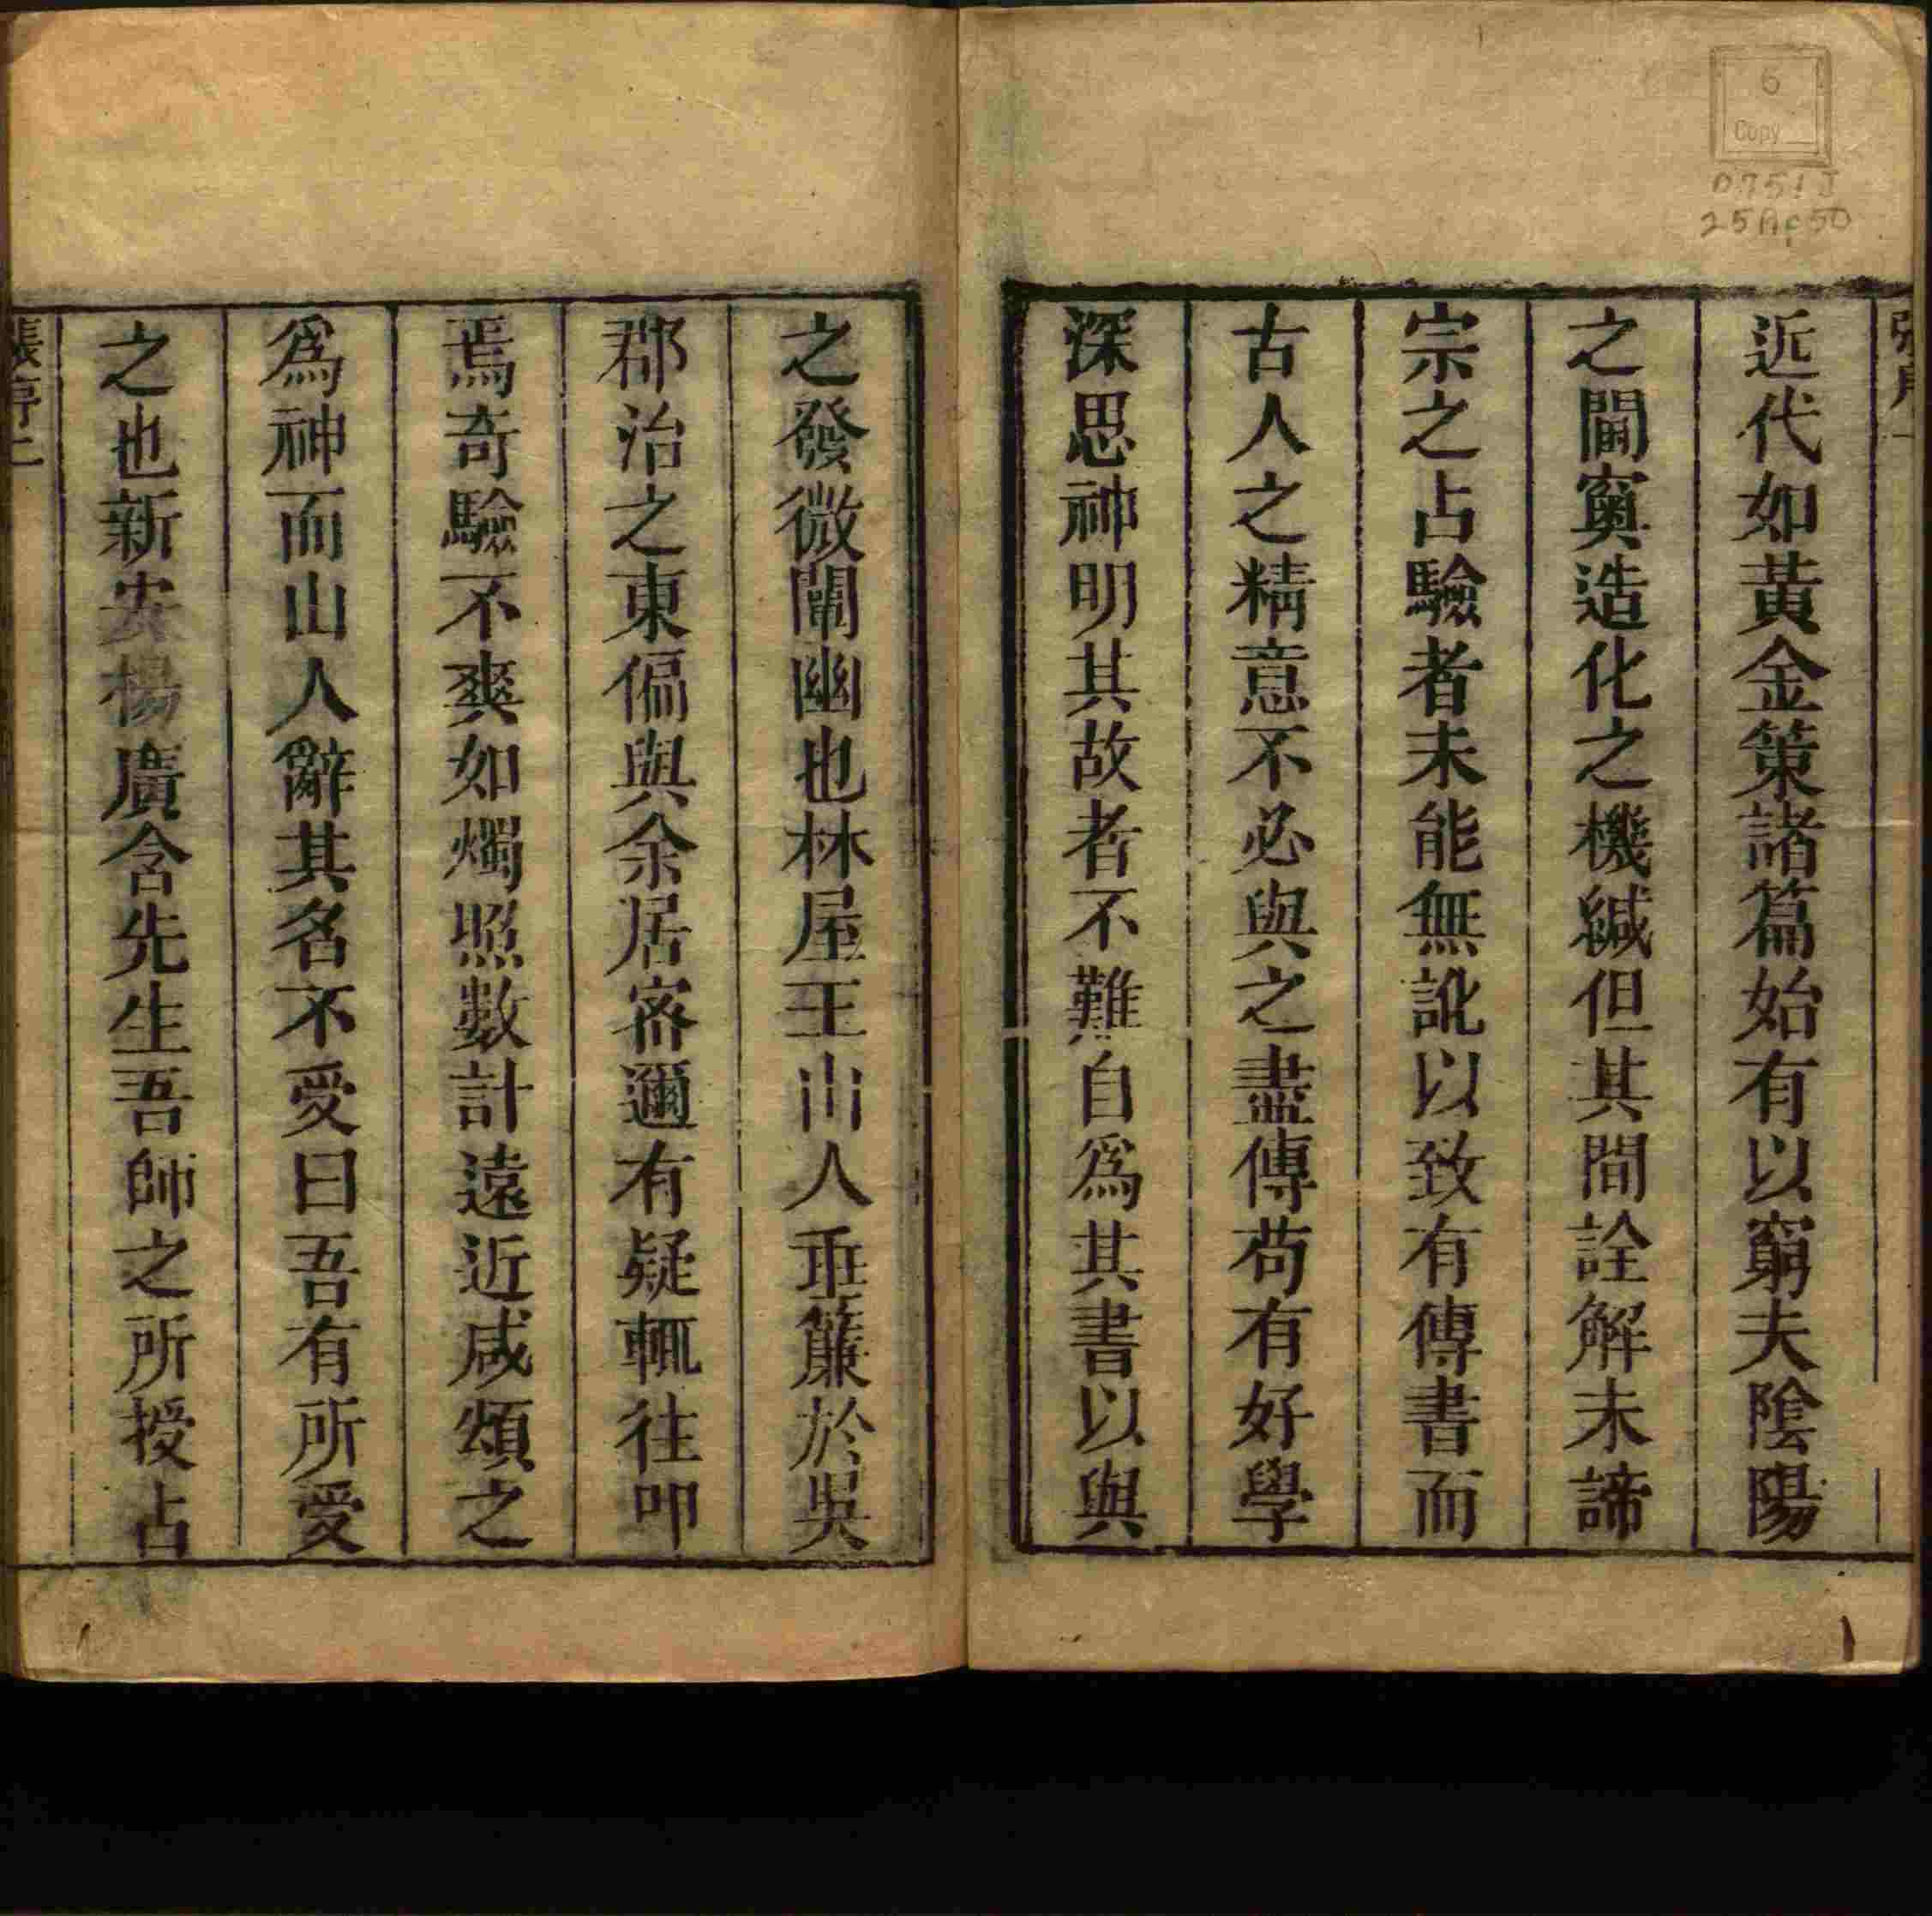 近代如黃金策諸篇始有以窮夫陰陽
之閫窔造化之機緘但其間詮解未諦
宗之占驗者未能無訛以致有傳書而
古人之精意不必與之盡傳苟有好學
深思神明其故者不難自爲其書以與
之發微闡幽也林屋王山人垂簾於吳
郡治之東偏與余居密邇有疑輒往叩
焉奇驗不爽如燭照數計遠近咸頌之
爲神而山人辭其名不受曰吾有所受
之也新安楊廣含先生吾師之所授占
張序二
6
Copy
0751J
25Ap50